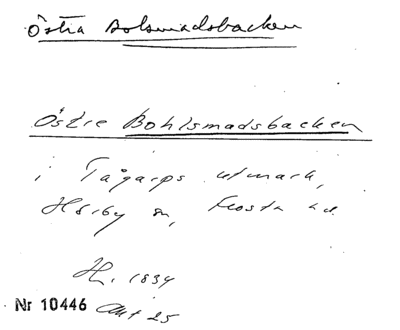 Östra Bolsmadsbacken
Östre Bohlsmadsbacken
i Tågarps utmark,
Hörby sn, Frosta hd.
H. 1834
Nr 10446 Akt 25